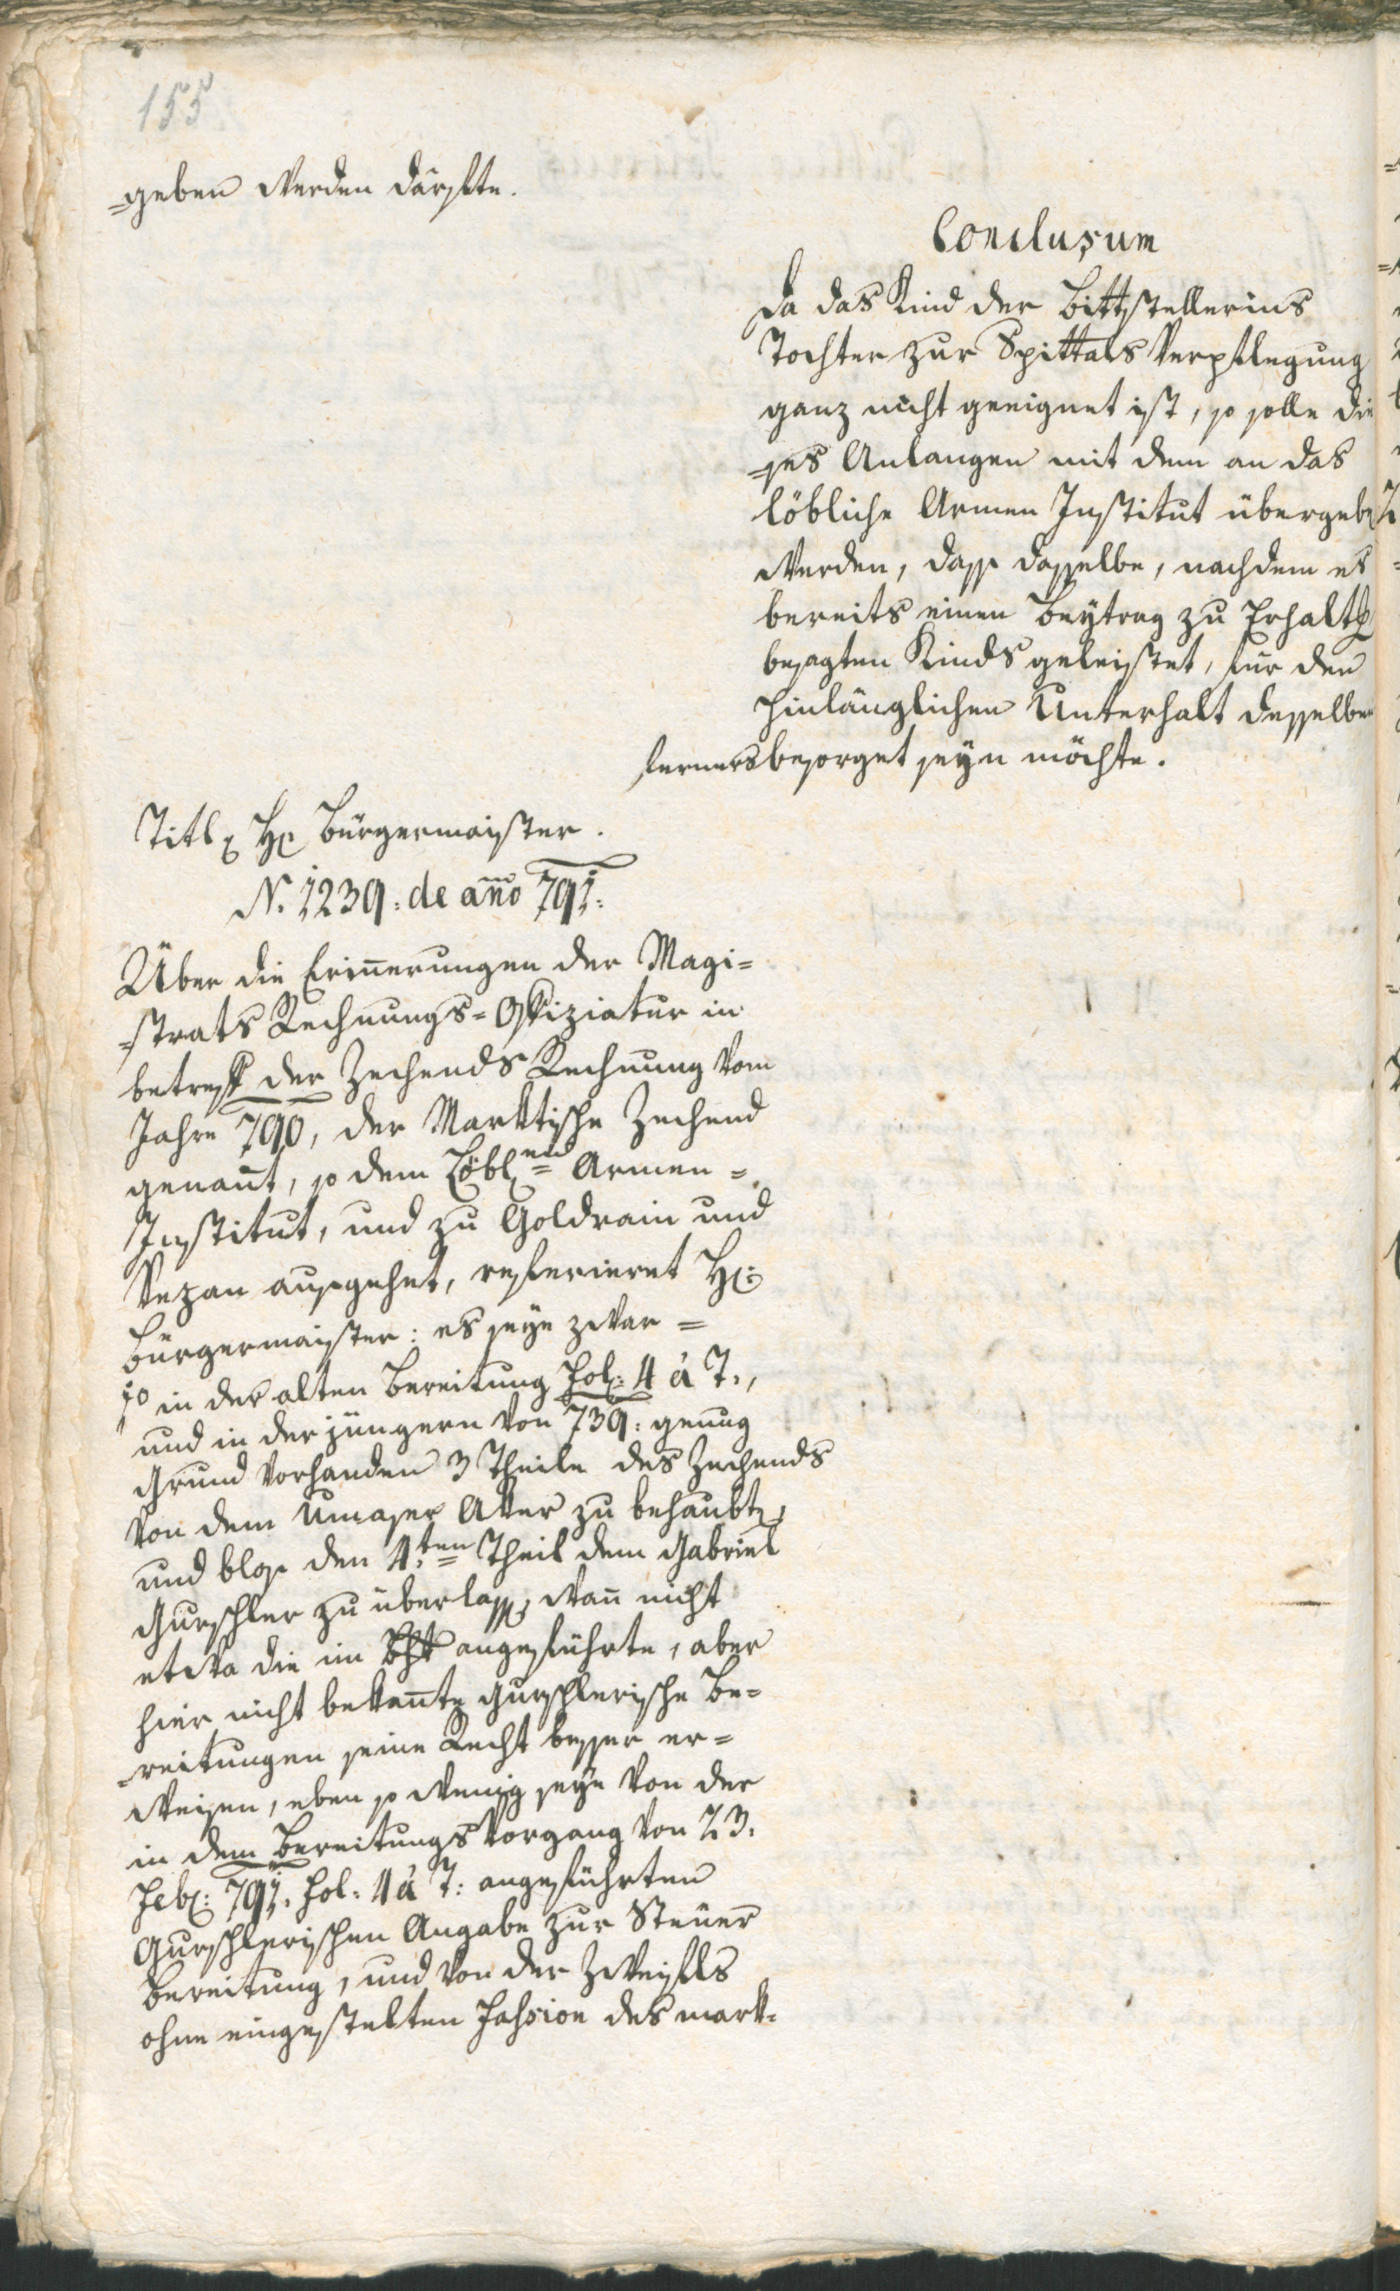 155
=geben werden därfte.
Conclusum
Da das Kind der Bittstellerins
Tochter zur Spittals Verpflegung
ganz nicht geeignet ist, so solle die
=ses Anlangen mit dem an das
löbliche Armen Institut übergeben
werden, dass dasselbe, nachdem es
bereits einen Beytrag zu Erhaltg
besagten Kinds geleistet, für den
hinlänglichen Unterhalt desselben
ferners besorget seyn möchte.
Titl Hr Bürgermaister.
N. 1239: de año 791:
Über die Erinnerungen der Magi=
=strats Rechnungs=Offiziatur in
betreff der Zechends Rechnung vom
Jahre 790, der Marktische Zechend
genannt, so dem Löbl:en Armen=
Institut, und zu Goldrain und
Vezan ausgehet, referieret Hr:
Bürgermaister: es seye zwar=
1o in der alten Bereitung Fol: 4 á T.,
und in der jüngern von 739: genug
Grund vorhanden 3 Theile des Zechends
von dem Umaser Aker zu behaubten,
und blos den 4:ten Theil dem Gabriel
Gurschler zu überlassen, wann nicht
etwa die im angeführte, aber
hier nicht bekannte Gurschlerische Be=
=reitungen seine Recht besser er=
weisen, eben so wenig seye von der
in dem Bereitungs Vorgang von 23:
Feb: 791. Fol: 4 á T: angeführten
Gurschlerischen Angabe zur Steuer
Bereitung, und von der Zweifels
ohne eingestelten Fassion des mark=